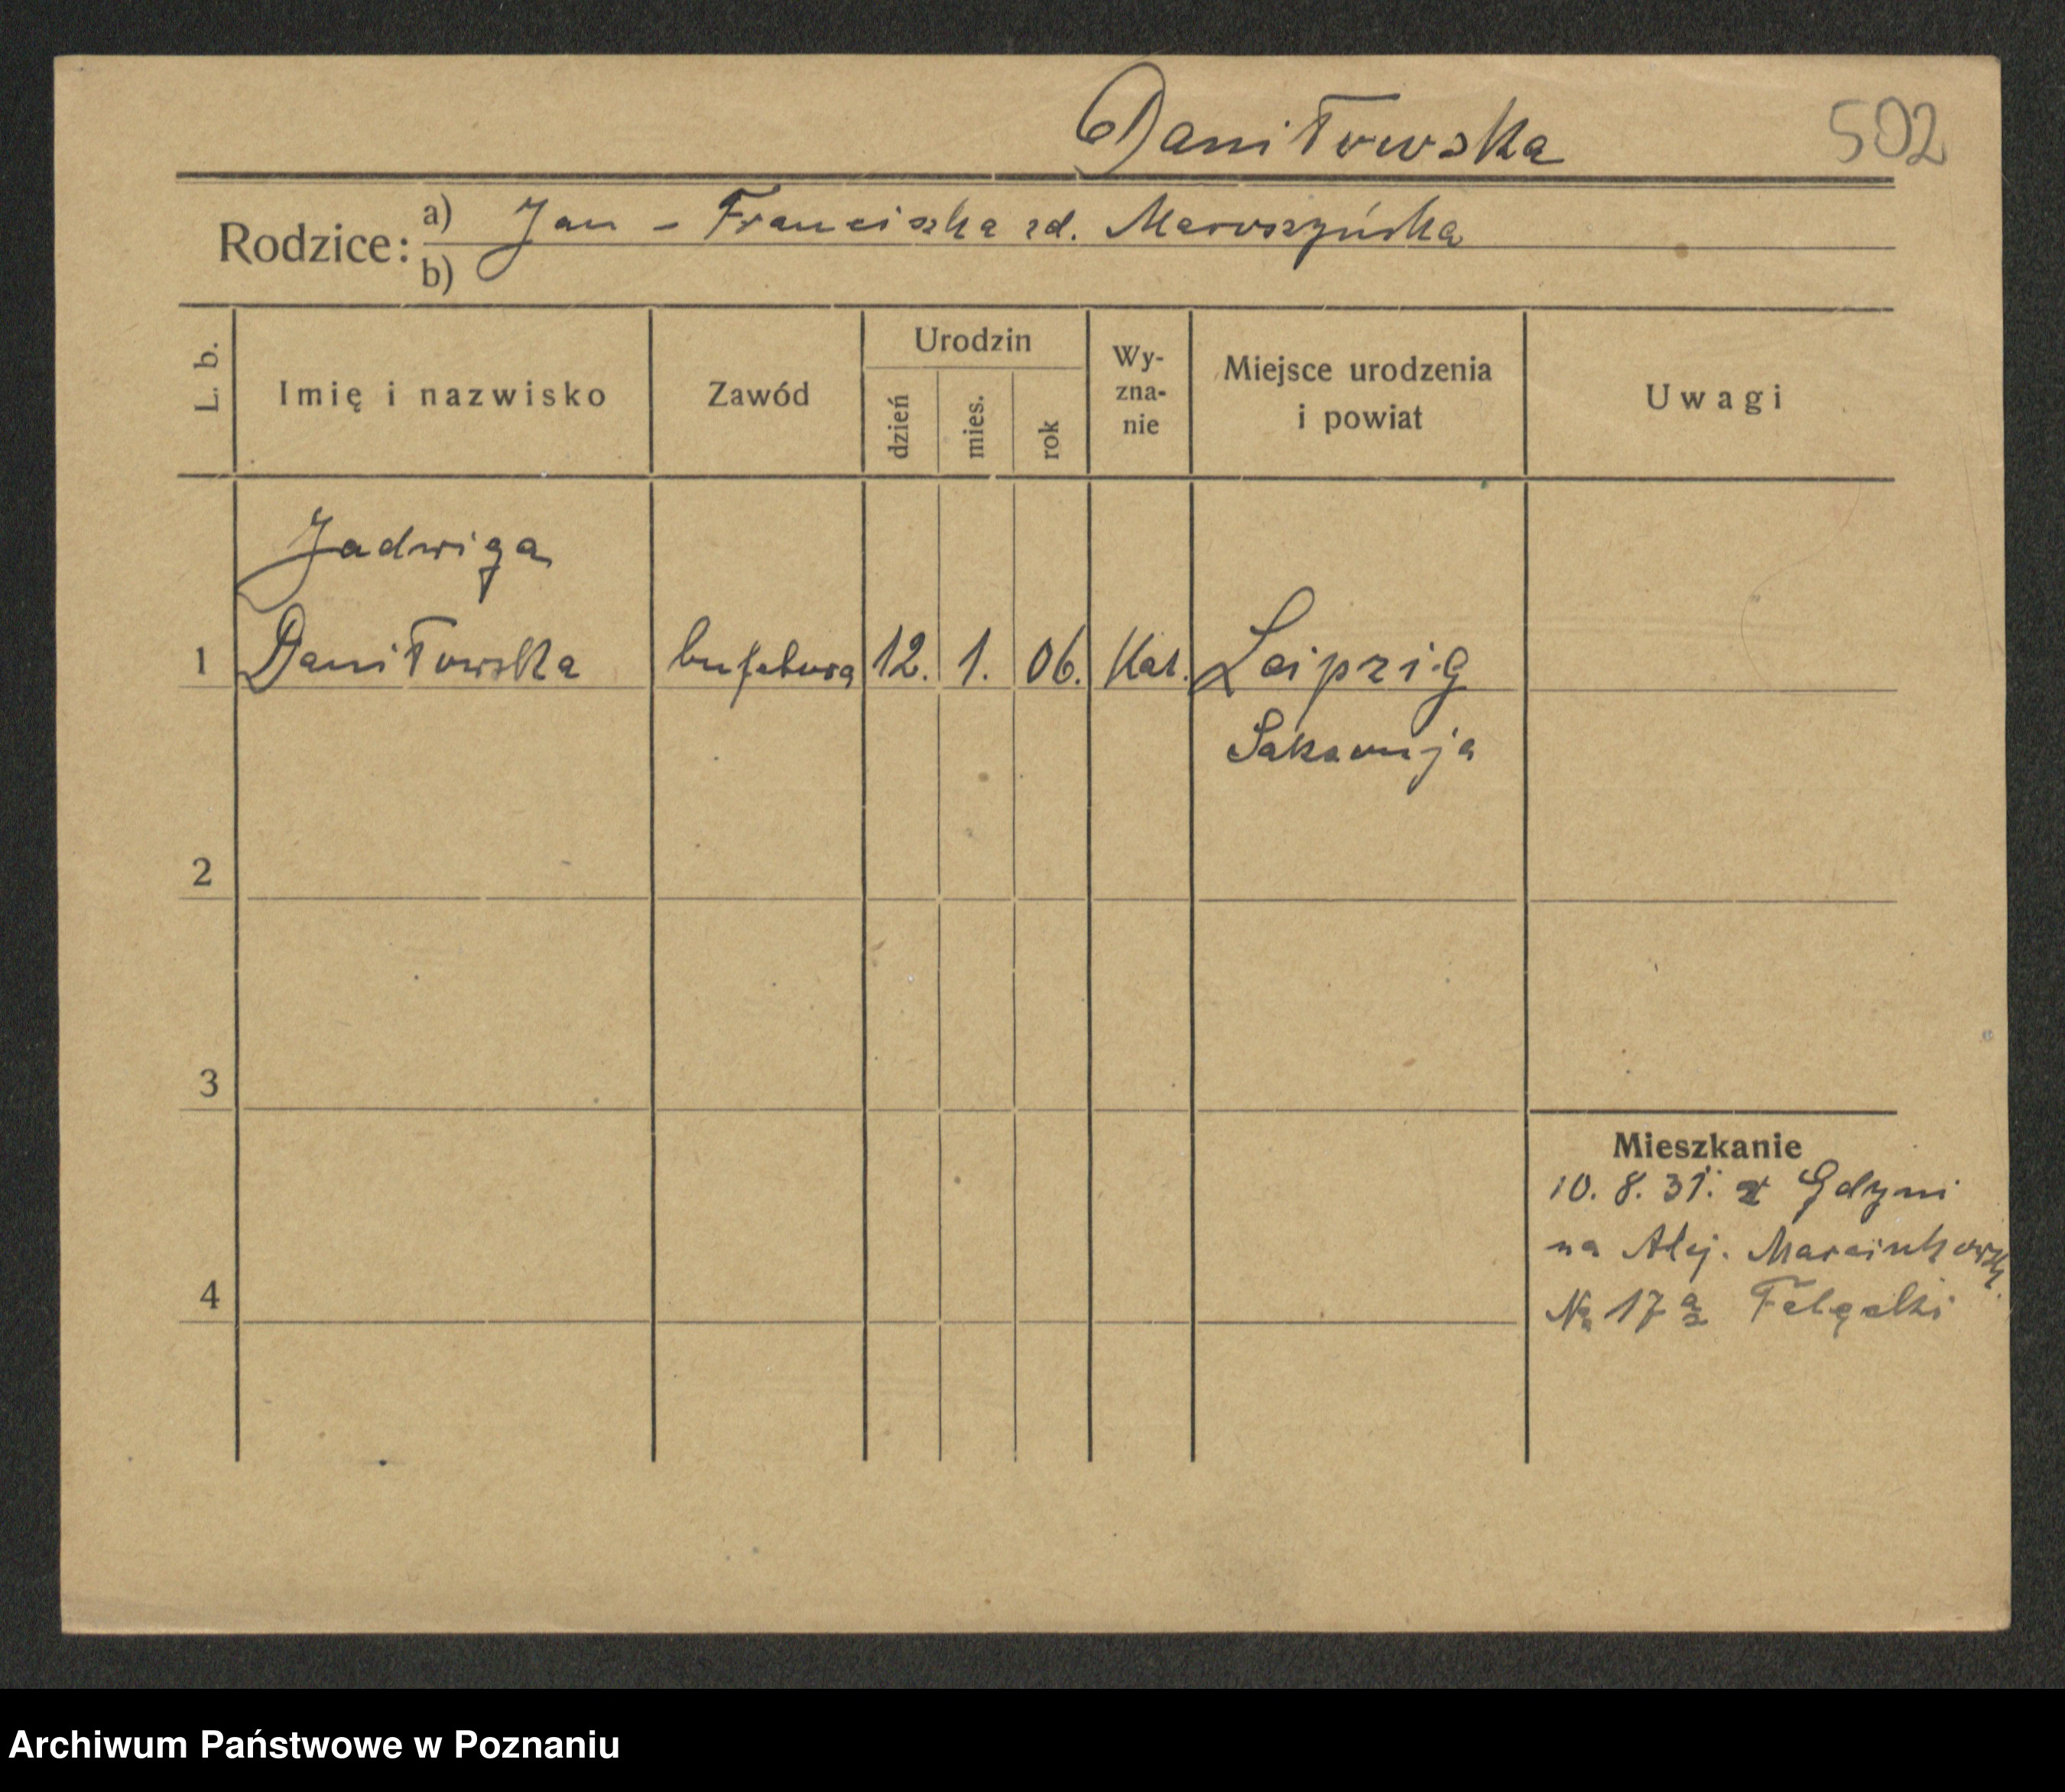 Daniłowska 502
Rodzice: a) Jan - Franciszka zd. Maroszyńska
b)
L. b. Imię i nazwisko Zawód Urodzin dzień mies. rok Wy-zna-nie Miejsce urodzenia i powiat Uwagi
Jadwiga
1 Daniłowska bufetowa 12. 1. 06. Kat. Leipzig
Saksonja
2
3
Mieszkanie
10. 8. 31. z Gdyni
na Alej. Marcinkowsk.
4 No 17
Archiwum Państwowe w Poznaniu